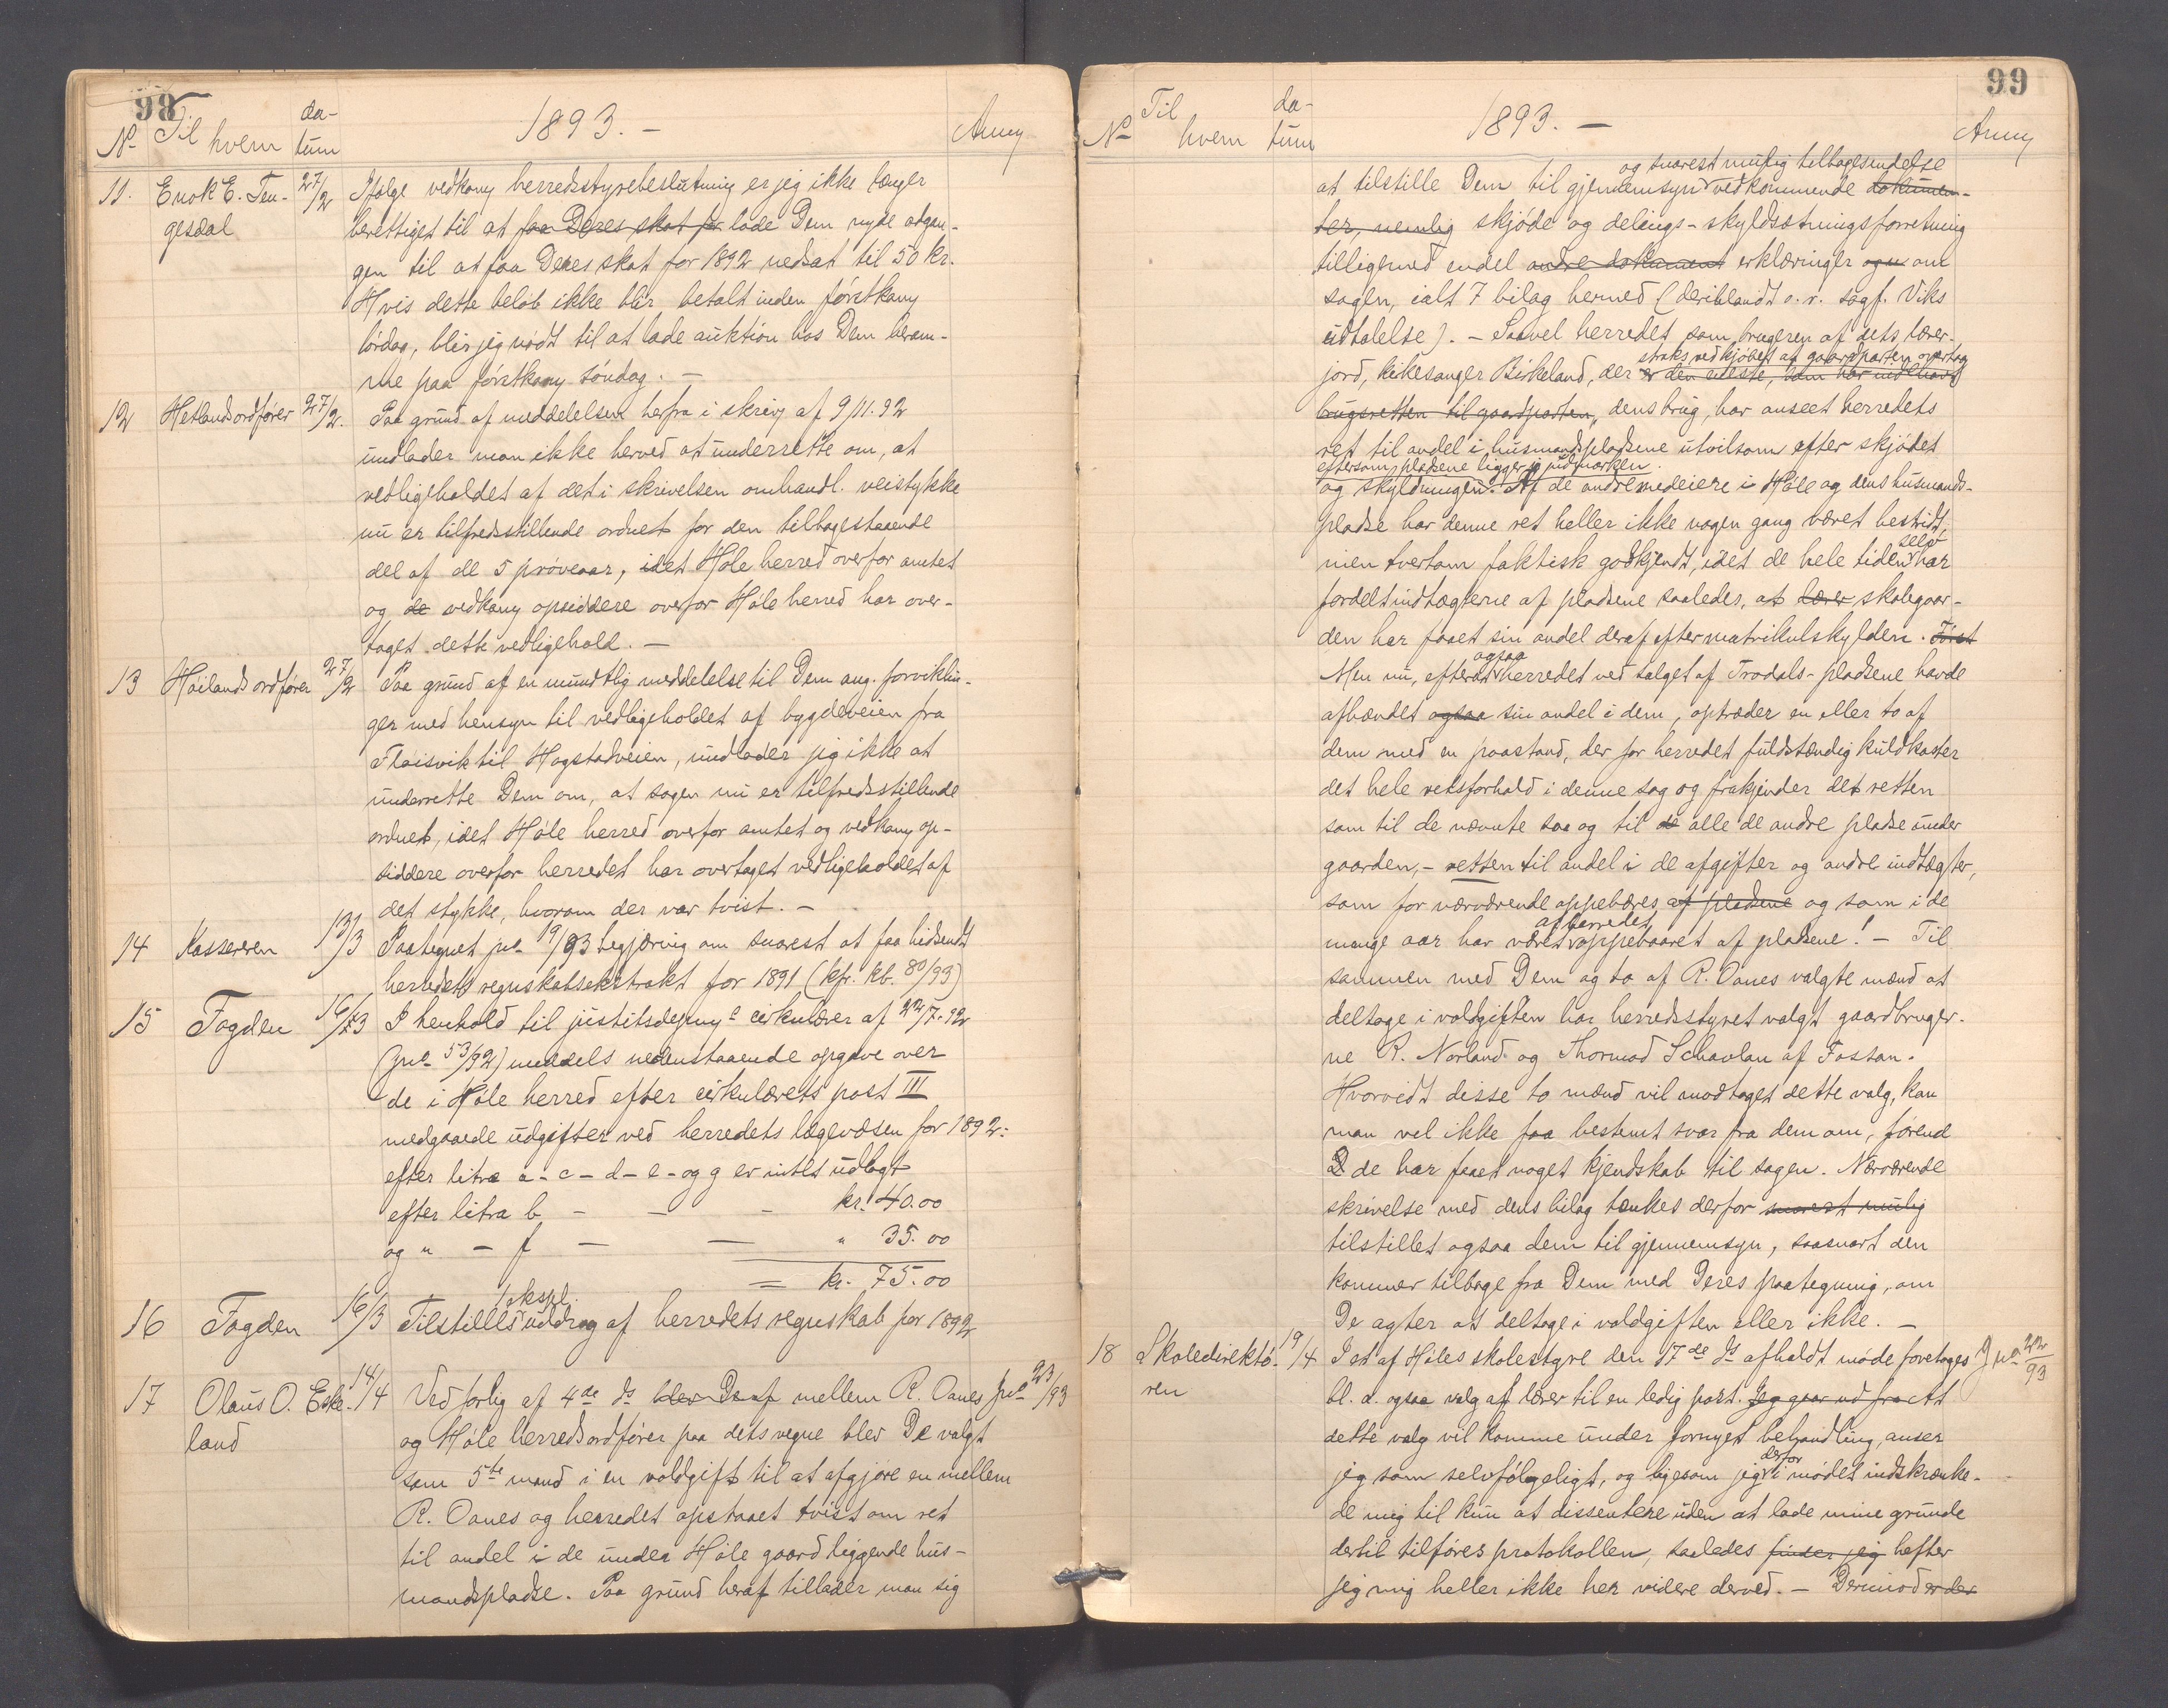 98
No Til hvem da-tum 1893. - Anm
11. Enok E. Ten- 27/2 Ifølge vedkom herredsstyrebeslutning er jeg ikke længer
gesdal berettiget til at faa Deres skat for lade Dem nyde adgan-
gen til at faa Deres skat for 1892 nedsat til 50 kr.
Hvis dette beløb ikke blir betalt inden førstkom
lørdag, blir jeg nødt til at lade auktion hos Dem beram-
me paa førstkom søndag. -
12 Hetlands ordfører 27/2. Paa grund af meddelelsen herfra i skriv af 9/11. 92
undlader man ikke herved at underrette om, at
vedligeholdet af det i skrivelsen omhandl. veistykke
nu er tilfredsstillende ordnet for den tilbagestaaende
del af de 5 prøveaar, idet Høle herred overfor amtet
og de vedkom opsiddere overfor Høle herred har over-
taget dette vedligehold. -
13 Høilands ordfører 27/2 Paa grund af en mundtlig meddelelse til Dem ang. forviklin-
ger med hensyn til vedligeholdet af bygdeveien fra
Fløisvik til Hogstadveien, undlader jeg ikke at
underrette Dem om, at sagen nu er tilfredsstillende
ordnet, idet Høle herred overfor amtet og vedkom op-
siddere overfor herredet har overtaget vedligeholdet af
det stykke, hvorom der var tvist. -
14 Kasserren 13/3 Paategnet jno 19/93 begjæring om snarest at faa hidsendt
herredets regnskabsekstrakt for 1891 (kfr. kb. 80/93)
15 Fogden 16/3 I henhold til justitsdepm cirkulærer af 22/7. 92
(jno 53/92) meddels nedenstaaende opgave over
de i Høle herred efter cirkulærets post III
medgaaede udgifter ved herredets lægevæsen for 1892:
efter litra a - c - d - e - og g er intet udlagt
efter litra b - - - kr. 40.00
og " - f - - " 35.00
= kr. 75.00
1 ekspl.
16 Fogden 16/3 Tilstilles uddrag af herredets regnskab for 1892
17 Olaus O. Eske- 14/4 Ved forlig af 4de ds blev De af mellem R. Oanes jno 23/93
land og Høle herreds ordfører paa dets vegne blev De valgt
som 5te mand i en voldgift til at afgjøre en mellem
R. Oanes og herredet opstaaet tvist om ret
til andel i de under Høle gaard liggende hus-
mandspladse. Paa grund heraf tillader man sig
99
No Til hvem da-tum 1893. - Anm
og snarest mulig tilbagesendelse
at tilstille Dem til gjennemsyn vedkommende dokumen-
ter, nemlig skjøde og delings-skyldsætningsforretning
tilligemed endel andre dokument erklæringer ogu om
sagen, ialt 7 bilag herned (deriblandt o. r. sagf. Viks
udtalelse). - Saavel herredet som brugeren af dets lærer-
straks ved kjøbet af gaardparten overtog
jord, kirkesanger Birkeland, der er den eneste, som har indehavt
brugsretten til gaardparten, dens brug, har anseet herredets
ret til andel i husmandspladsene utvilsom efter skjødet
eftersom pladsene ligger i udmarken.
og skyldningen. Af de andre medeiere i Høle og dens husmands-
pladse har denne ret heller ikke nogen gang været bestridt,
selv
men tvertom faktisk godkjendt, idet de hele tiden har
fordelt indtægterne af pladsene saaledes, at lærer skolegaar-
den har faaet sin andel deraf efter matrikulskylden. Først
ogsaa
Men nu, efterat herredet ved salget af Trodals-pladsene havde
afhændet ogsaa sin andel i dem, optræder en eller to af
dem med en paastand, der for herredet fuldstændig kuldkaster
det hele retsforhold i denne sag og frakjender det retten
som til de nævnte saa og til de alle de andre pladse under
gaarden, - retten til andel i de afgifter og andre indtægter,
som for nærværende oppebæres af pladsene og som i de
af herredet
mange aar har været oppebaaret af pladsene! - Til
sammen med Dem og to af R. Oanes valgte mænd at
deltage i voldgiften har herredsstyret valgt gaardbruger-
ne R. Norland og Thormod Schavlan af Fossan.
Hvorvidt disse to mænd vil modtaget dette valg, kan
man vel ikke faa bestemt svar fra dem om, førend
de har faaet noget kjendskab til sagen. Nærværende
skrivelse med dens bilag tænkes derfor snarest mulig
tilstillet ogsaa dem til gjennemsyn, saasnart den
kommer tilbage fra Dem med Deres paategning, om
De agter at deltage i voldgiften eller ikke. -
18 Skoledirektø- 19/4 I et af Høles skolestyre den 17de ds afholdt møde foretoges Jno 22/93
ren bl. a. ogsaa valg af lærer til en ledig post. Jeg gaar ud fra At
dette valg vil komme under fornyet behandling, anser
derfor
jeg som selvfølgeligt, og ligesom jeg i mødet indskrænke-
de mig til kun at dissentere uden at lade mine grunde
dertil tilføres protokollen, saaledes finder jeg hefter
jeg mig heller ikke her videre derved. - Derimod er der